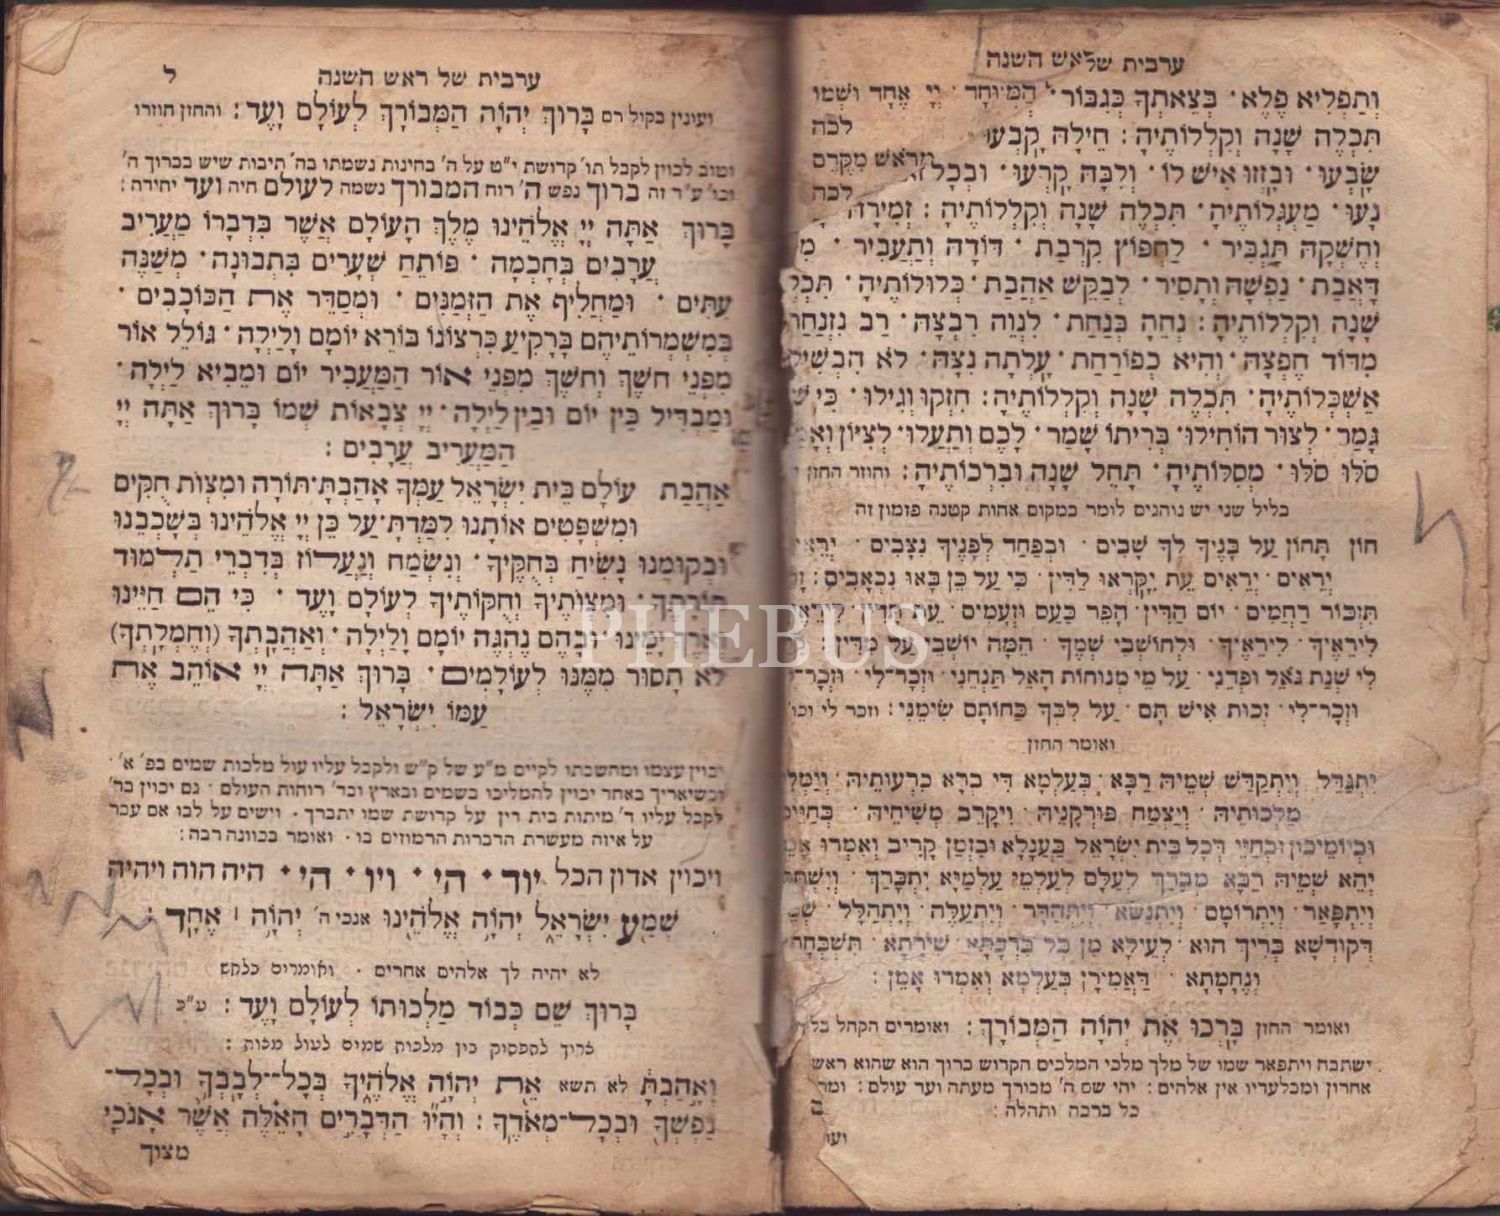 ערבית של ראש השנה
וְתַפְלִיא פֶלֶא· בְּצֵאתְךָ כְּגִבּוֹר· הַמְיוּחָד· יְיָ אֶחָד וּשְׁמוֹ
תִּכְלֶה שָׁנָה וְקִלְלוֹתֶיהָ: חֵילָהּ קָבְעוּ לכה
שָׂבְעוּ· וּבָזְזוּ אִישׁ לוֹ· וְלִבָּהּ קָרְעוּ· וּבְכָל זֹאת מראש מקדם
נָעוּ· מַעְגְּלוֹתֶיהָ· תִּכְלֶה שָׁנָה וְקִלְלוֹתֶיהָ: זְמִירָה לכה
וְחֶשְׁקָהּ תַּגְבִּיר· לַחְפּוֹץ קִרְבַת· דּוֹדָהּ וְתַעֲבִיר·
דַּאֲבַת· נַפְשָׁהּ וְתָסִיר· לְבַקֵּשׁ אַהֲבַת· כְּלוּלוֹתֶיהָ·
שָׁנָה וְקִלְלוֹתֶיהָ: נְחֵהָ בְנַחַת· לִנְוֵה רִבְצָהּ· רַב נִזְנַחַת
מִדּוֹד חֶפְצָהּ· וְהִיא כְפוֹרַחַת· עָלְתָה נִצָּהּ· לֹא הִבְשִׁילוּ
אַשְׁכְּלוֹתֶיהָ· תִּכְלֶה שָׁנָה וְקִלְלוֹתֶיהָ: חִזְקוּ וְגִילוּ· כִּי
גָּמַר· לְצוּר הוֹחִילוּ· בְּרִיתוֹ שָׁמַר· לָכֶם וְתַעֲלוּ· לְצִיּוֹן
סֹלּוּ סֹלּוּ· מְסִלּוֹתֶיהָ· תָּחֵל שָׁנָה וּבִרְכוֹתֶיהָ: וחוזר החזן
בליל שני יש נוהגים לומר במקום אחות קטנה פזמון זה
חוֹן תָּחוֹן עַל בָּנֶיךָ לְךָ שָׁבִים· וּבְפַחַד לְפָנֶיךָ נִצָּבִים·
יְרֵאִים· יְרֵאִים עֵת יִקָּרְאוּ לַדִּין· כִּי עַל כֵּן בָּאוּ נִכְאָבִים:
תִּזְכּוֹר רַחֲמִים· יוֹם הַדִּין· הָפֵר כַּעַס וּזְעָמִים·
לִירֵאֶיךָ· לִירֵאֶיךָ· וּלְחוֹשְׁבֵי שְׁמֶךָ· הֵמָּה יוֹשְׁבֵי עַל מִדִּין:
לִי שְׁנַת גֹּאֵל וּפְדֵנִי· עַל מֵי מְנוּחוֹת הָאֵל תַּנְחֵנִי· וּזְכָר־לִי·
וּזְכָר־לִי· זְכוּת אִישׁ תָּם· עַל לִבְּךָ כַּחוֹתָם שִׂימֵנִי: וזכר לי וכו'
ואומר החזן
יִתְגַּדַּל וְיִתְקַדַּשׁ שְׁמֵיהּ רַבָּא· בְּעָלְמָא דִּי בְרָא כִרְעוּתֵיהּ· וְיַמְלִיךְ
מַלְכוּתֵיהּ· וְיַצְמַח פּוּרְקָנֵיהּ· וִיקָרֵב מְשִׁיחֵיהּ· בְּחַיֵּיכוֹן
וּבְיוֹמֵיכוֹן וּבְחַיֵּי דְּכָל בֵּית יִשְׂרָאֵל בַּעֲגָלָא וּבִזְמַן קָרִיב וְאִמְרוּ אָמֵן
יְהֵא שְׁמֵיהּ רַבָּא מְבָרַךְ לְעָלַם לְעָלְמֵי עָלְמַיָּא יִתְבָּרַךְ· וְיִשְׁתַּבַּח
וְיִתְפָּאַר· וְיִתְרוֹמַם· וְיִתְנַשֵּׂא· וְיִתְהַדָּר· וְיִתְעַלֶּה· וְיִתְהַלָּל·
דְּקוּדְשָׁא בְּרִיךְ הוּא· לְעֵילָּא מִן כָּל בִּרְכָתָא· שִׁירָתָא· תֻּשְׁבְּחָתָא
וְנֶחָמָתָא· דַּאֲמִירָן בְּעָלְמָא וְאִמְרוּ אָמֵן:
ואומר החזן בָּרְכוּ אֶת יְהוָֹה הַמְבוֹרָךְ: ואומרים הקהל בלחש
ישתבח ויתפאר שמו של מלך מלכי המלכים הקדוש ברוך הוא שהוא ראשון
אחרון ומבלעדיו אין אלהים: יהי שם ה' מבורך מעתה ועד עולם:
כל ברכה ותהלה: ב
ועו
ערבית של ראש השנה ל
ועונין בקול רם בָּרוּךְ יְהוָֹה הַמְבוֹרָךְ לְעוֹלָם וָעֶד: והחזן חוזרו
וטוב לכוין לקבל תו' קדושת י"ט על ה' בחינות נשמתו בה' תיבות שיש בברוך ה'
וכו' ע"ר זה ברוך נפש ה' רוח המבורך נשמה לעולם חיה ועד יחידה:
בָּרוּךְ אַתָּה יְיָ אֱלֹהֵינוּ מֶלֶךְ הָעוֹלָם אֲשֶׁר בִּדְבָרוֹ מַעֲרִיב
עֲרָבִים בְּחָכְמָה· פּוֹתֵחַ שְׁעָרִים בִּתְבוּנָה· מְשַׁנֶּה
עִתִּים· וּמַחֲלִיף אֶת הַזְּמַנִּים· וּמְסַדֵּר אֶת הַכּוֹכָבִים·
בְּמִשְׁמְרוֹתֵיהֶם בָּרָקִיעַ כִּרְצוֹנוֹ בּוֹרֵא יוֹמָם וָלַיְלָה· גּוֹלֵל אוֹר
מִפְּנֵי חֹשֶׁךְ וְחֹשֶׁךְ מִפְּנֵי אוֹר הַמַּעֲבִיר יוֹם וּמֵבִיא לַיְלָה·
וּמַבְדִּיל בֵּין יוֹם וּבֵין לַיְלָה· יְיָ צְבָאוֹת שְׁמוֹ בָּרוּךְ אַתָּה יְיָ
הַמַּעֲרִיב עֲרָבִים:
אַהֲבַת עוֹלָם בֵּית יִשְׂרָאֵל עַמְּךָ אָהַבְתָּ· תּוֹרָה וּמִצְוֹת חֻקִּים
וּמִשְׁפָּטִים אוֹתָנוּ לִמַּדְתָּ· עַל כֵּן יְיָ אֱלֹהֵינוּ בְּשָׁכְבֵנוּ
וּבְקוּמֵנוּ נָשִׂיחַ בְּחֻקֶּיךָ· וְנִשְׂמַח וְנַעֲלוֹז בְּדִבְרֵי תַלְמוּד
תּוֹרָתֶךָ· וּמִצְוֹתֶיךָ וְחֻקּוֹתֶיךָ לְעוֹלָם וָעֶד· כִּי הֵם חַיֵּינוּ
וְאֹרֶךְ יָמֵינוּ· וּבָהֶם נֶהְגֶּה יוֹמָם וָלַיְלָה· וְאַהֲבָתְךָ (וְחֶמְלָתְךָ)
לֹא תָסוּר מִמֶּנּוּ לְעוֹלָמִים· בָּרוּךְ אַתָּה יְיָ אוֹהֵב אֶת
עַמּוֹ יִשְׂרָאֵל:
יכוין עצמו ומחשבתו לקיים מ"ע של ק"ש ולקבל עליו עול מלכות שמים בפ' א'
וכשיאריך באחד יכוין להמליכו בשמים ובארץ ובד' רוחות העולם· גם יכוין בד'
לקבל עליו ד' מיתות בית דין על קדושת שמו יתברך· וישים על לבו אם עבר
על איזה מעשרת הדברות הרמוזים בו· ואומר בכוונה רבה:
ויכוין אדון הכל יוד· הי· ויו· הי· היה הוה ויהיה
שְׁמַע יִשְׂרָאֵל יְהוָֹה אֱלֹהֵינוּ אנכי ה' יְהוָֹה ׀ אֶחָד:
לא יהיה לך אלהים אחרים· ואומרים בלחש
בָּרוּךְ שֵׁם כְּבוֹד מַלְכוּתוֹ לְעוֹלָם וָעֶד: ע"כ
צריך להפסיק בין מלכות שמים לעול מצות:
וְאָהַבְתָּ לא תשא אֵת יְהוָֹה אֱלֹהֶיךָ בְּכָל־לְבָבְךָ וּבְכָל־
נַפְשְׁךָ וּבְכָל־מְאֹדֶךָ: וְהָיוּ הַדְּבָרִים הָאֵלֶּה אֲשֶׁר אָנֹכִי
מצוך
PHEBUS